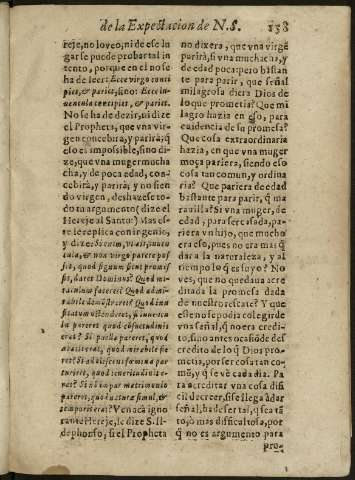 de la Expectacion de N.S. 138
reje, no lo veo, ni de ese lu
gar se puede probar tal in
tento, porque en el no se
ha de leer: Ecce virgo conci
piet, & pariet, sino: Ecce iu
uencula concipiet, & pariet.
No se ha de dezir, ni dize
el Propheta, que vna vir-
gen concebira, y parirà; q̃
eso el imposible, sino di-
ze, que vna muger mucha
cha, y de poca edad, conce-
birà, y parirà; y no sien
do virgen, deshazese to-
do tu argumento (dize el
Hereje al Santo) Mas es-
te le replica con ingenio,
y dize: si enim, vt ais, iuuen
cula, & non virgo parere pos
sit, quod signum sint promis
sis, daret Dominus? Quid mi-
raculum faceret? Quod admi-
rabile demõstraret? Quod in
sitatum ostenderet, si iuuencu
la pareret quod consuetudinis
erat? Si puella pareret, quod
ætatis erat, quod mirabile fie
ret? Si adolescens fœmina par
turiret, quod teneritudinis es-
set? Si nõ impar matrimonio
pareret, quod naturæ simul, &
temporis erat? Ven acà igno
rante Hereje, le dize S. Il-
dephonso, si el Propheta
no dixera, que vna virgẽ
parirà, si vna muchacha, y
de edad poca; pero bastan
te para parir, que señal
milagrosa diera Dios de
lo que prometia? Que mi
lagro hazia en eso, para
euidencia de su promesa?
Que cosa extraordinaria
hazia, en que vna muger
moça pariera, siendo eso
cosa tan comun, y ordina
ria? Que pariera de edad
bastante para parir, q̃ ma
rauilla? Si vna muger, de
edad, para ser casada, pa-
riera vn hijo, que mucho
era eso, pues no era mas q̃
dar a la naturaleza, y al
tiempo lo q̃ es suyo? No
ves, que no quedaua acre
ditada la promesa dada
de nuestro rescate? Y que
este no se podia colegir de
vna señal, q̃ no era credi-
to, sino antes ocasiõ de des
credito de lo q̃ Dios pro-
metia, por ser cosa tan co-
mũ, y q̃ se vè cada dia. Pa
ra acreditar vna cosa difi
cil de creer, si se llega à dar
señal, ha de ser tal, q sea tã-
to, ò mas dificultosa, por
q̃ no es argumento para
pro-